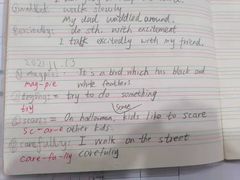 walk slowly
My dad waddled around.
excitedly: do sth. with excitement
I talk excitedly with my friend.
2021
magpie: It is a bird which has black and
mag-pie white feathers
trying: try to do something
try Some
scare: On halloween, kids like to scare
sc-are other kids.
carefully: I walk on the street
care-fu-lly carefully